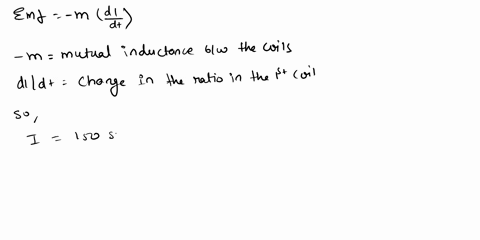 Emf = -m (dI/dt)
-m = mutual inductance b/w the coils
dI/dt = change in the ratio in the 1st coil
so,
I = 150 s